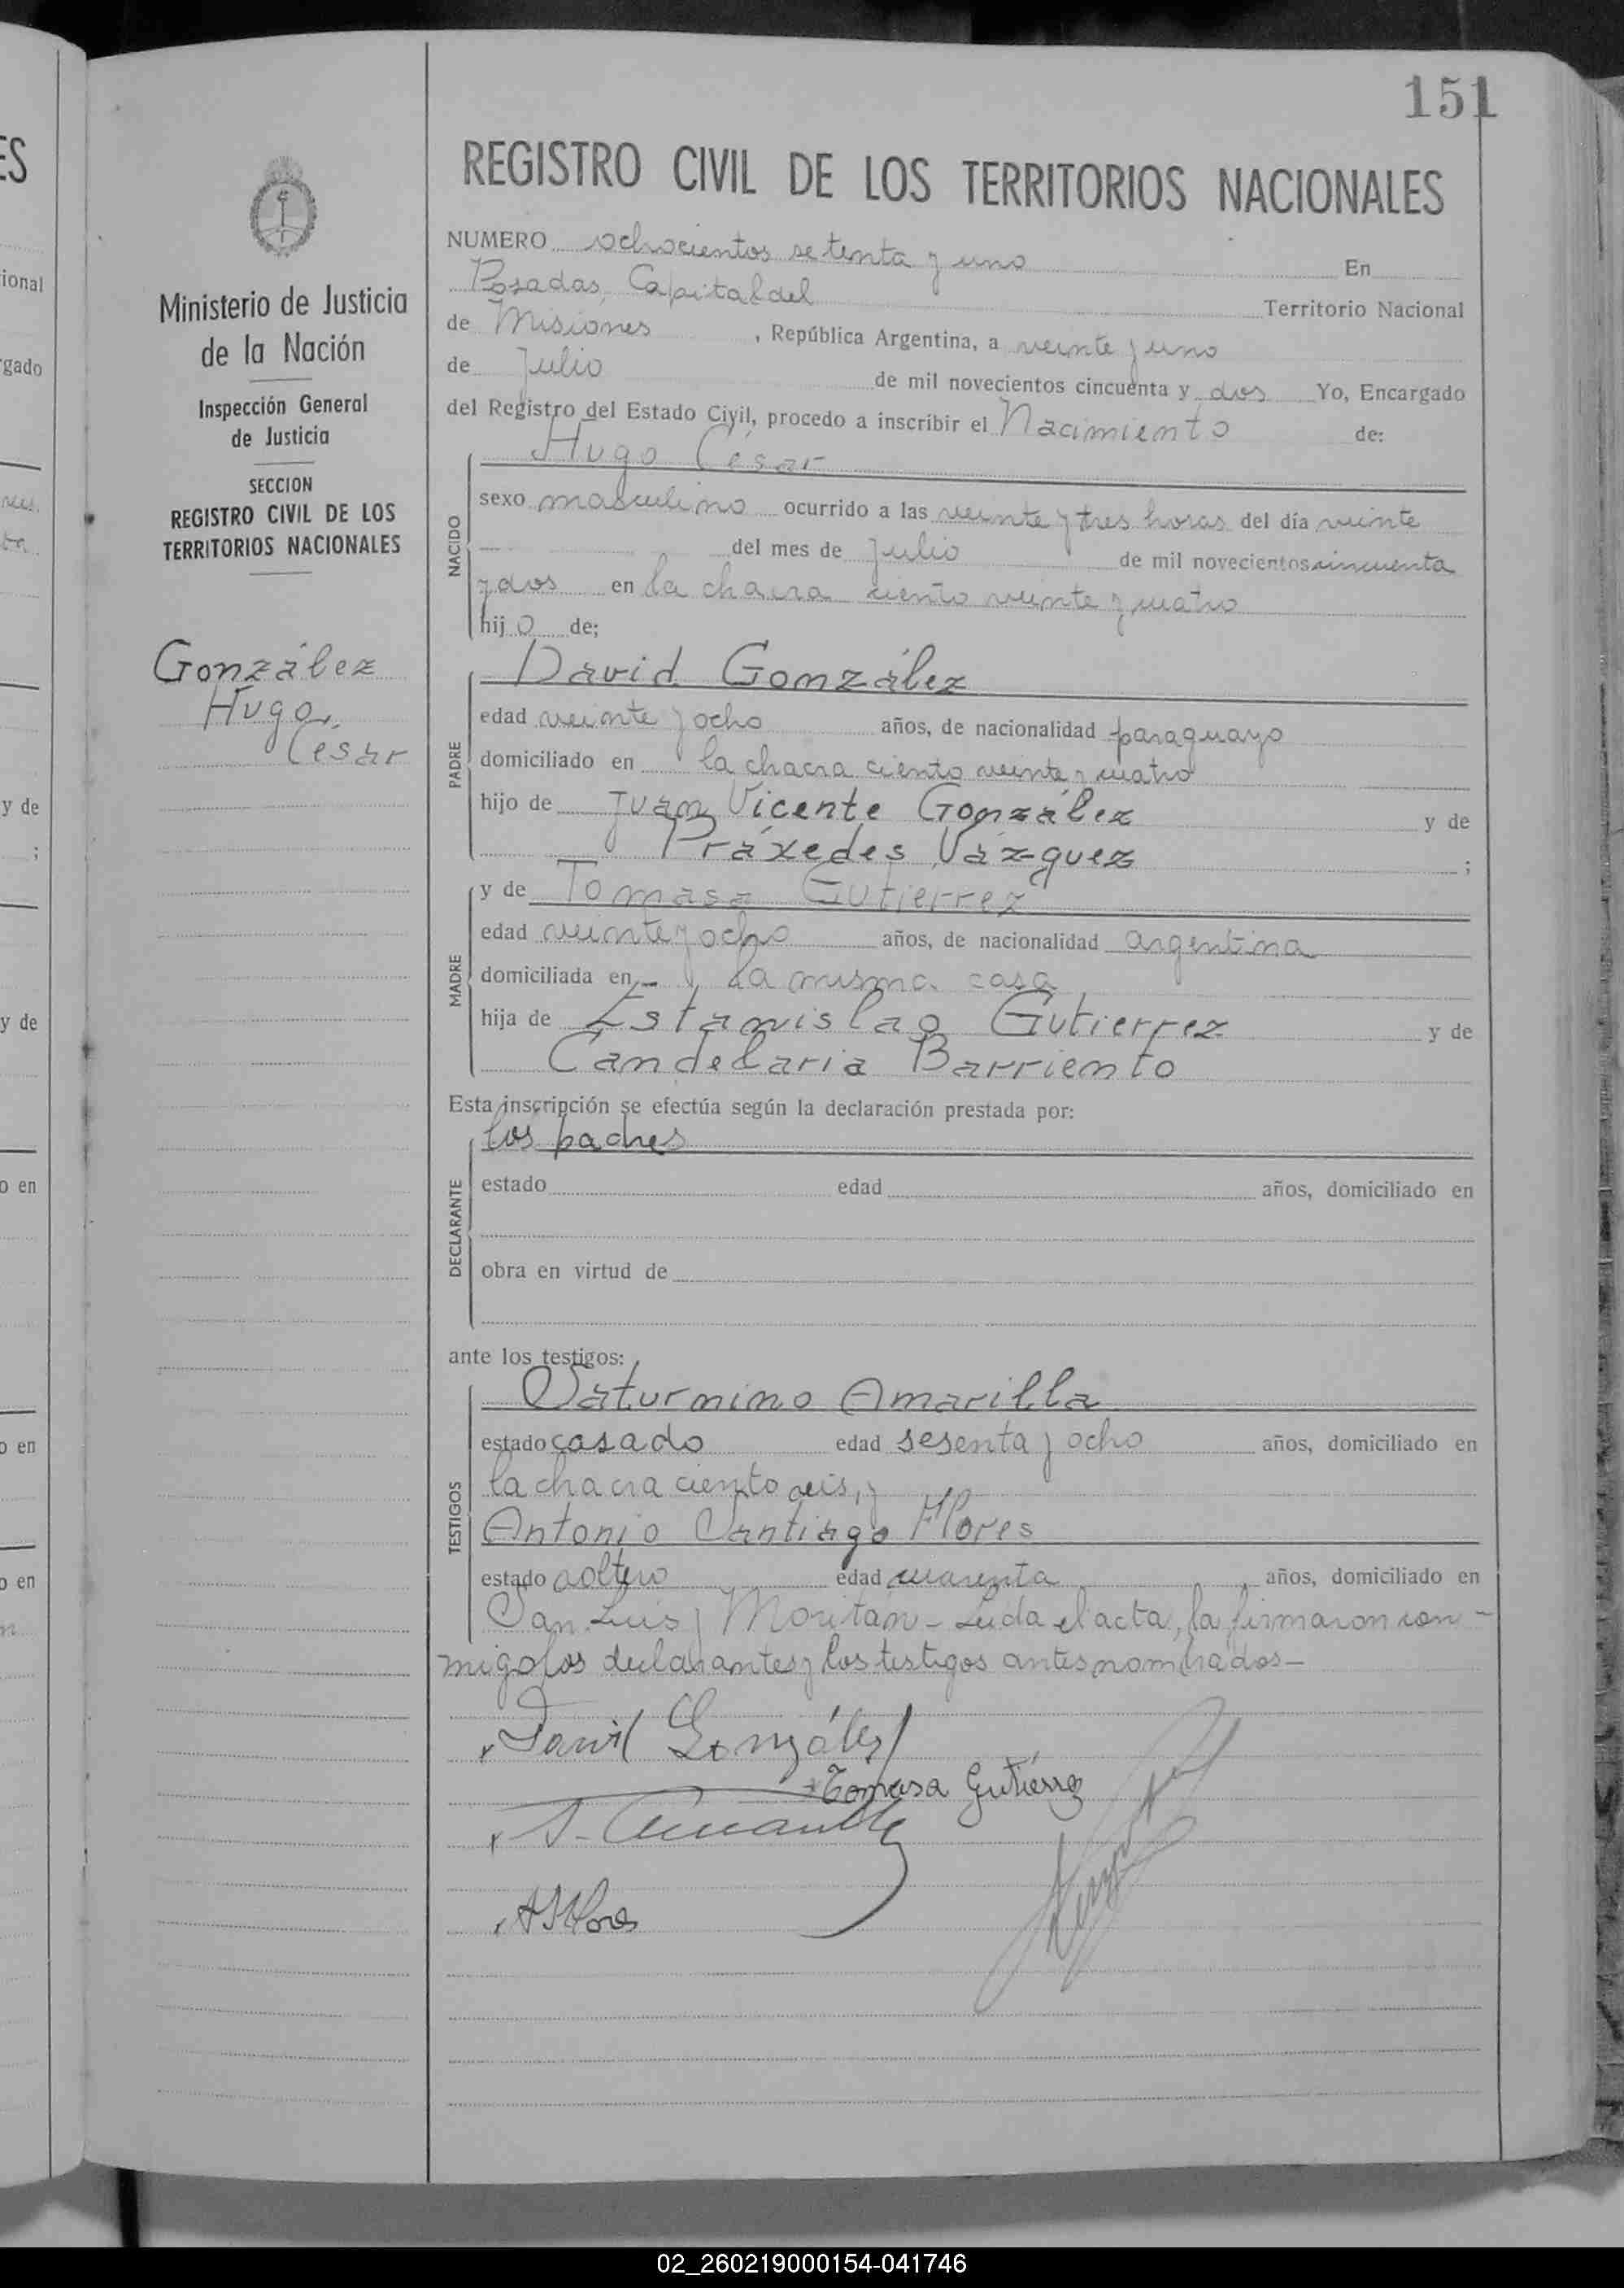 151
REGISTRO CIVIL DE LOS TERRITORIOS NACIONALES
Ministerio de Justicia
de la Nación
Inspección General
de Justicia
SECCION
REGISTRO CIVIL DE LOS
TERRITORIOS NACIONALES
González
Hugo
César
NUMERO ochocientos setenta y uno En
Posadas, Capital del Territorio Nacional
de Misiones, República Argentina, a veinte y uno
de Julio de mil novecientos cincuenta y dos Yo, Encargado
del Registro del Estado Civil, procedo a inscribir el Nacimiento de:
NACIDO
Hugo César
sexo masculino ocurrido a las veinte y tres horas del día veinte
del mes de Julio de mil novecientos cincuenta
y dos en la chacra ciento veinte y cuatro
hijo de;
PADRE
David González
edad veinte y ocho años, de nacionalidad paraguayo
domiciliado en la chacra ciento veinte y cuatro
hijo de Juan Vicente González y de
Práxedes Vázquez ;
MADRE
y de Tomasa Gutierrez
edad veinte y ocho años, de nacionalidad argentina
domiciliada en - la misma casa
hija de Estanislao Gutierrez y de
Candelaria Barriento
Esta inscripción se efectúa según la declaración prestada por:
DECLARANTE
los padres
estado edad años, domiciliado en
obra en virtud de
ante los testigos:
TESTIGOS
Saturnino Amarilla
estado casado edad sesenta y ocho años, domiciliado en
la chacra ciento seis, y
Antonio Santiago Flores
estado soltero edad cuarenta años, domiciliado en
San Luis y Moritán - Leida el acta, la firmaron con-
migo los declarantes y los testigos antes nombrados-
David González
Tomasa Gutiérrez
S. Amarilla
A S Flores
ES
ional
rgado
y de
;
y de
o en
o en
o en
02_260219000154-041746